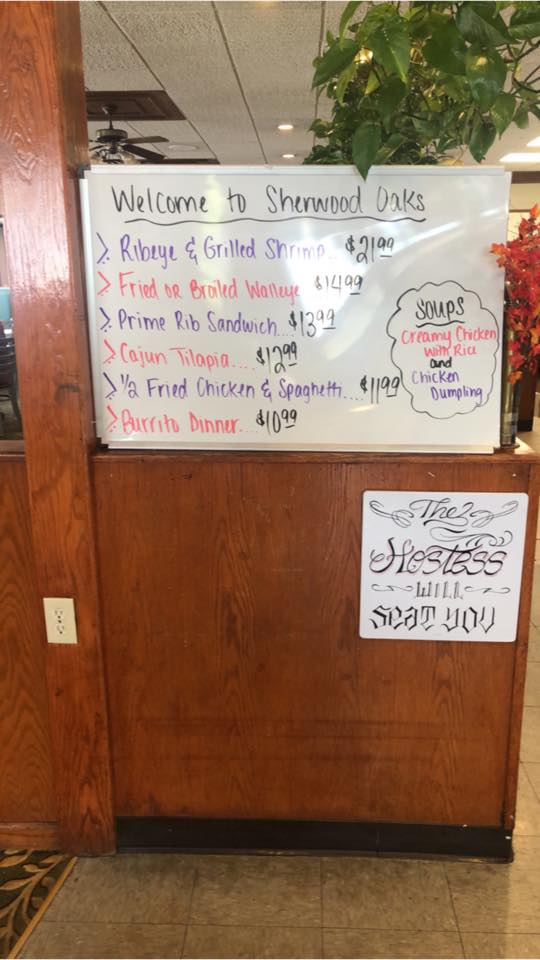 Welcome to Sherwood Oaks
Ribeye & Grilled Shrimp.. $21.99
Fried or Broiled Walleye $14.99
Prime Rib Sandwich.. $13.99
Cajun Tilapia.... $12.99
1/2 Fried Chicken & Spaghetti.... $11.99
Burrito Dinner.... $10.99
Soups
Creamy Chicken
with Rice
and
Chicken
Dumpling
The
Hostess
WILL
SEAT YOU